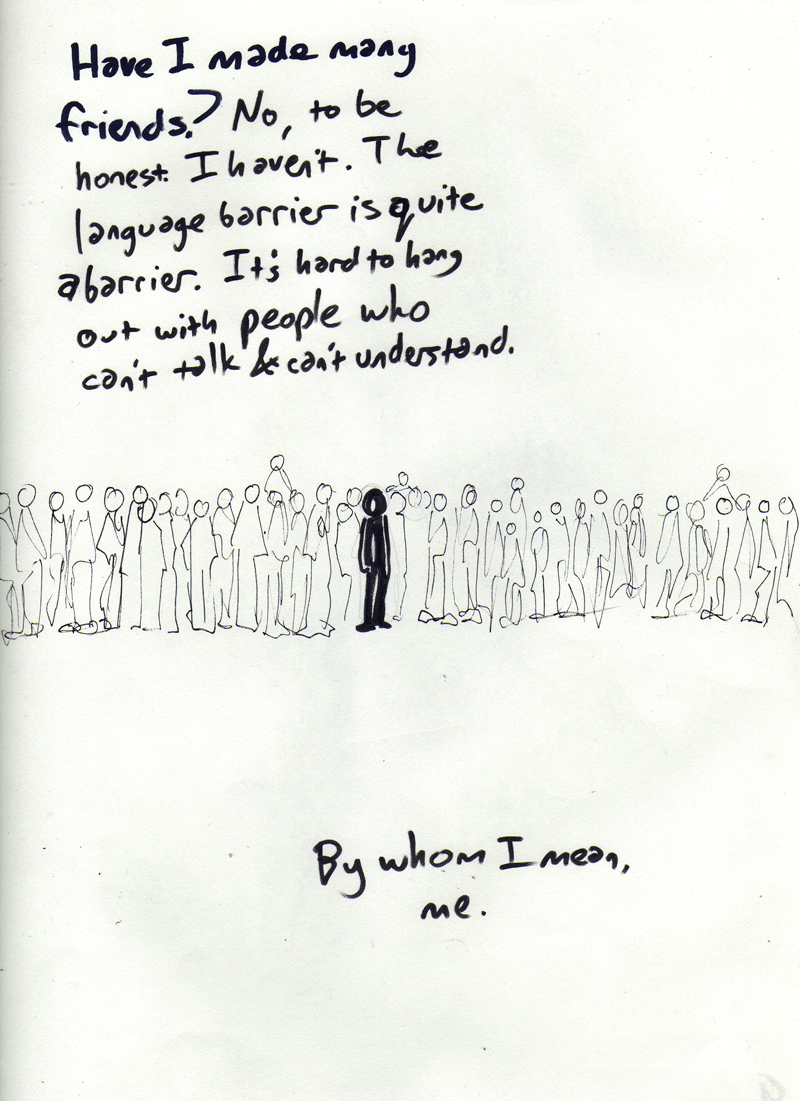 Have I made many
friends? No, to be
honest. I haven't. The
language barrier is quite
a barrier. It's hard to hang
out with people who
can't talk & can't understand.
By whom I mean,
me.